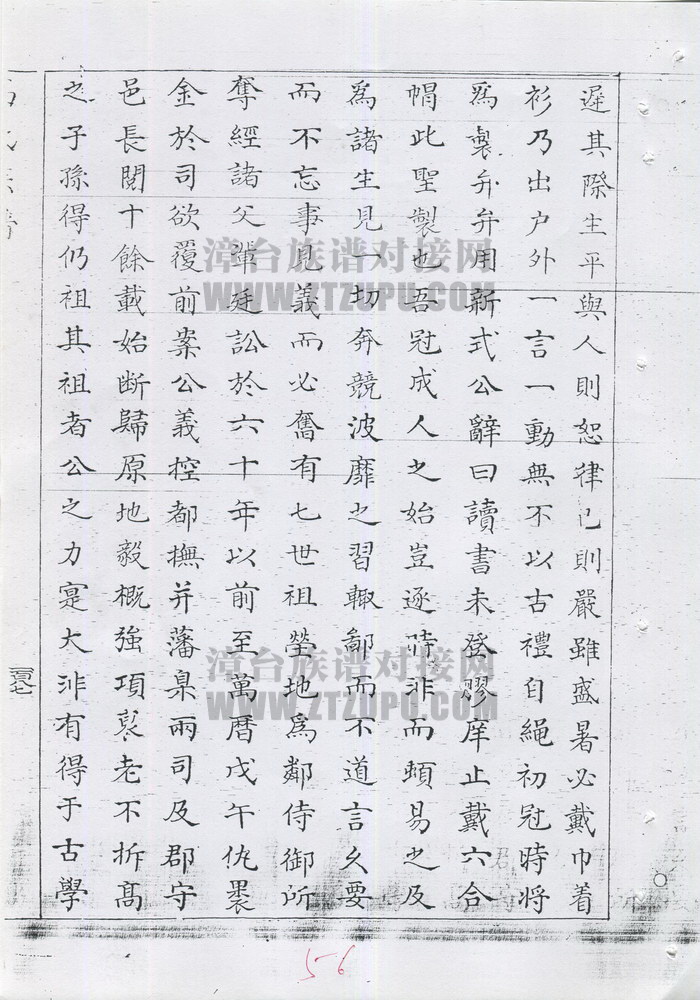 遲其際生平與人則恕律己則嚴雖盛暑必戴巾着
衫乃出户外一言一動無不以古禮自繩初冠時將
爲製弁弁用新式公辭曰讀書未登膠庠止戴六合
帽此聖製也吾冠成人之始豈逐時非而頓易之及
爲諸生見一切奔競波靡之習輙鄙而不道言久要
而不忘事見義而必奮有七世祖塋地爲鄰侍御所
奪經諸父輩廷訟於六十年以前至萬曆戊午仇
金於司欲覆前案公義控都撫并藩臬兩司及郡守
邑長閱十餘載始斷歸原地毅概強項老不折高
之子孫得仍祖其祖者公之力寔大非有得于古學
漳台族谱对接网
WWW.ZTZUPU.COM
漳台族谱对接网
WWW.ZTZUPU.COM
5-6